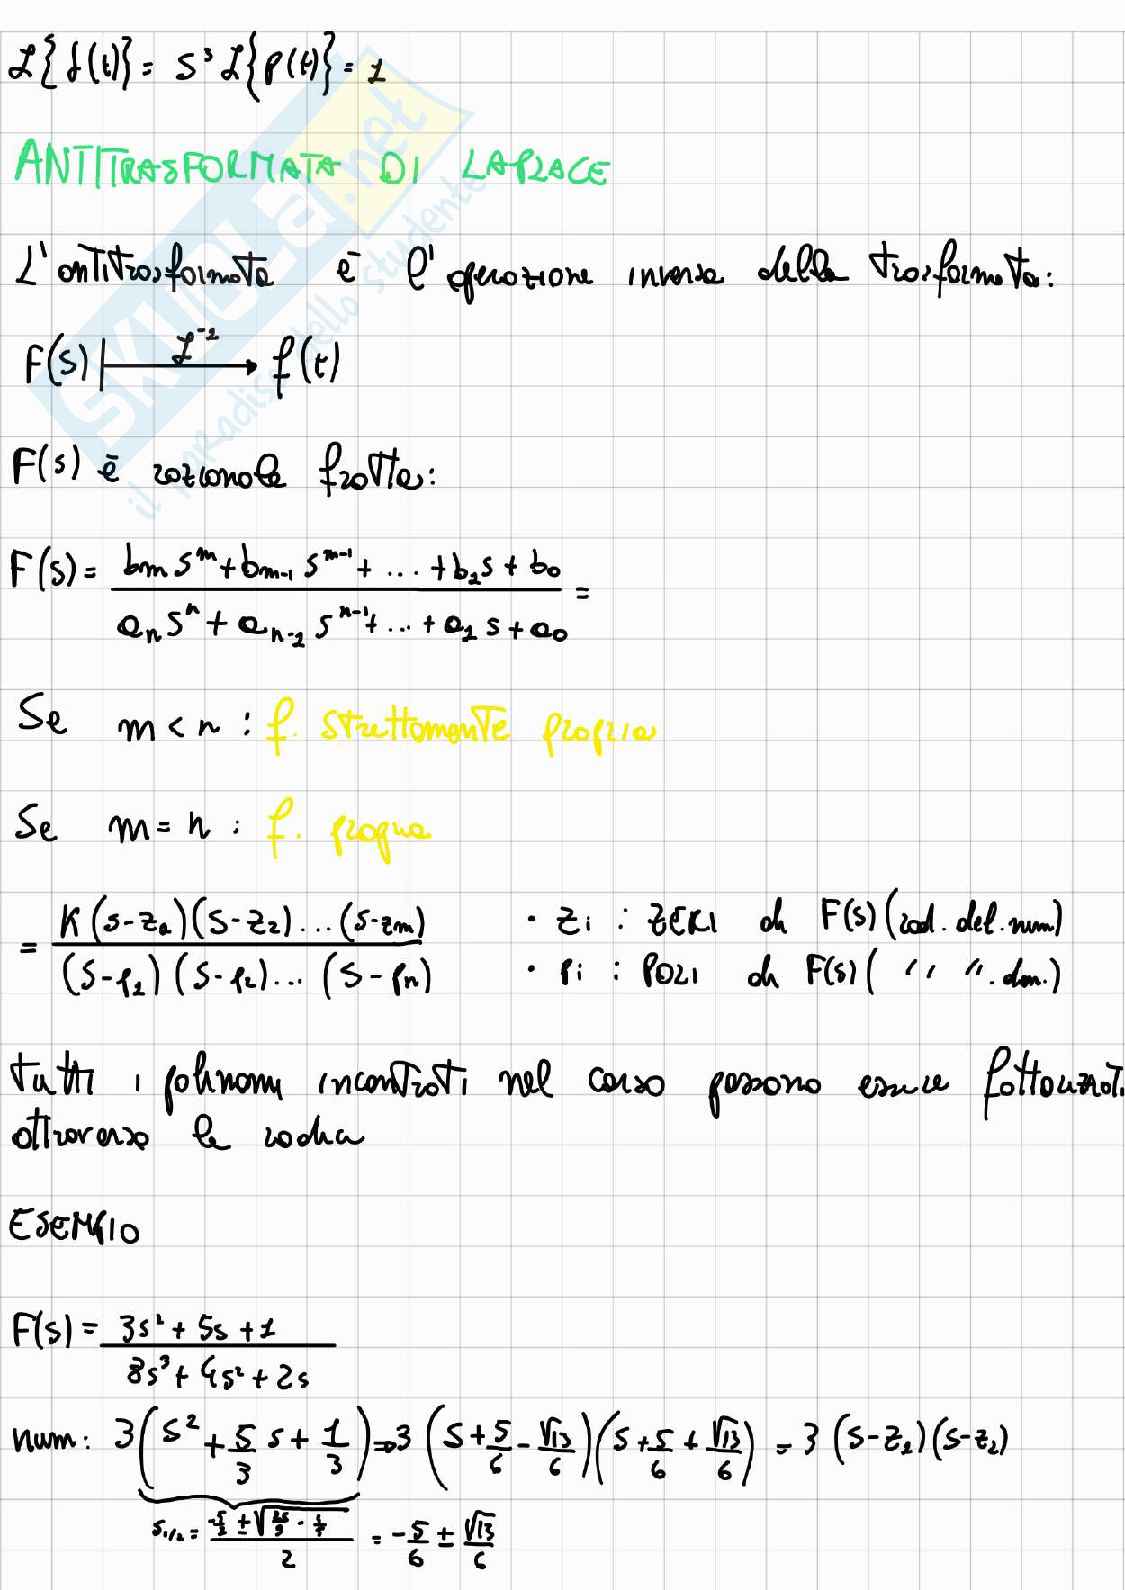 ℒ{f(t)} = s³ ℒ{p(t)} = 1
ANTITRASFORMATA DI LAPLACE
L'antitrasformata è l'operazione inversa della trasformata:
F(s) |—ℒ⁻¹→ f(t)
F(s) è razionale fratta:
F(s) = (bm s^m + bm-1 s^m-1 + ... + b1 s + b0) / (an s^n + an-1 s^n-1 + ... + a1 s + a0) =
Se m < n : f. strettamente propria
Se m = n : f. propria
= K (s-z1)(s-z2)...(s-zm) / (s-p1)(s-p2)...(s-pn)
· zi : ZERI di F(s) (rad. del. num)
· pi : POLI di F(s) ( " " . den.)
Tutti i polinomi incontrati nel corso possono essere fattorizzati
attraverso le radici
ESEMPIO
F(s) = (3s² + 5s + 1) / (8s³ + 4s² + 2s)
num: 3(s² + 5/3 s + 1/3) → 3 (s + 5/6 - √13/6)(s + 5/6 + √13/6) = 3 (s-z1)(s-z2)
= -5/6 ± √13/6
SKUOLA.net
il paradiso dello studente